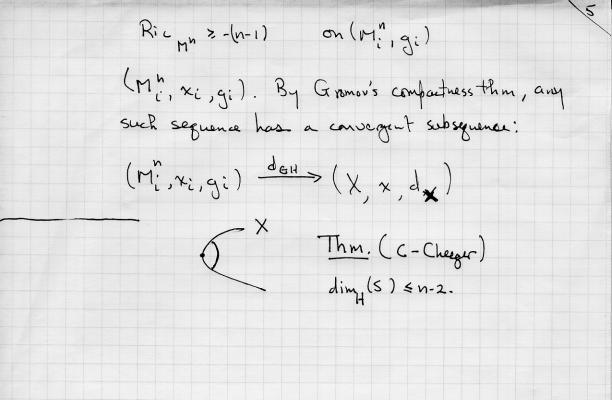 5
Ric_{M^n} ≥ -(n-1) on (M_i^n, g_i)
(M_i^n, x_i, g_i). By Gromov's compactness thm, any
such sequence has a convergent subsequence:
(M_i^n, x_i, g_i) \xrightarrow{d_{GH}} (X, x, d_X)
X
Thm. (C-Cheeger)
dim_H(S) ≤ n-2.